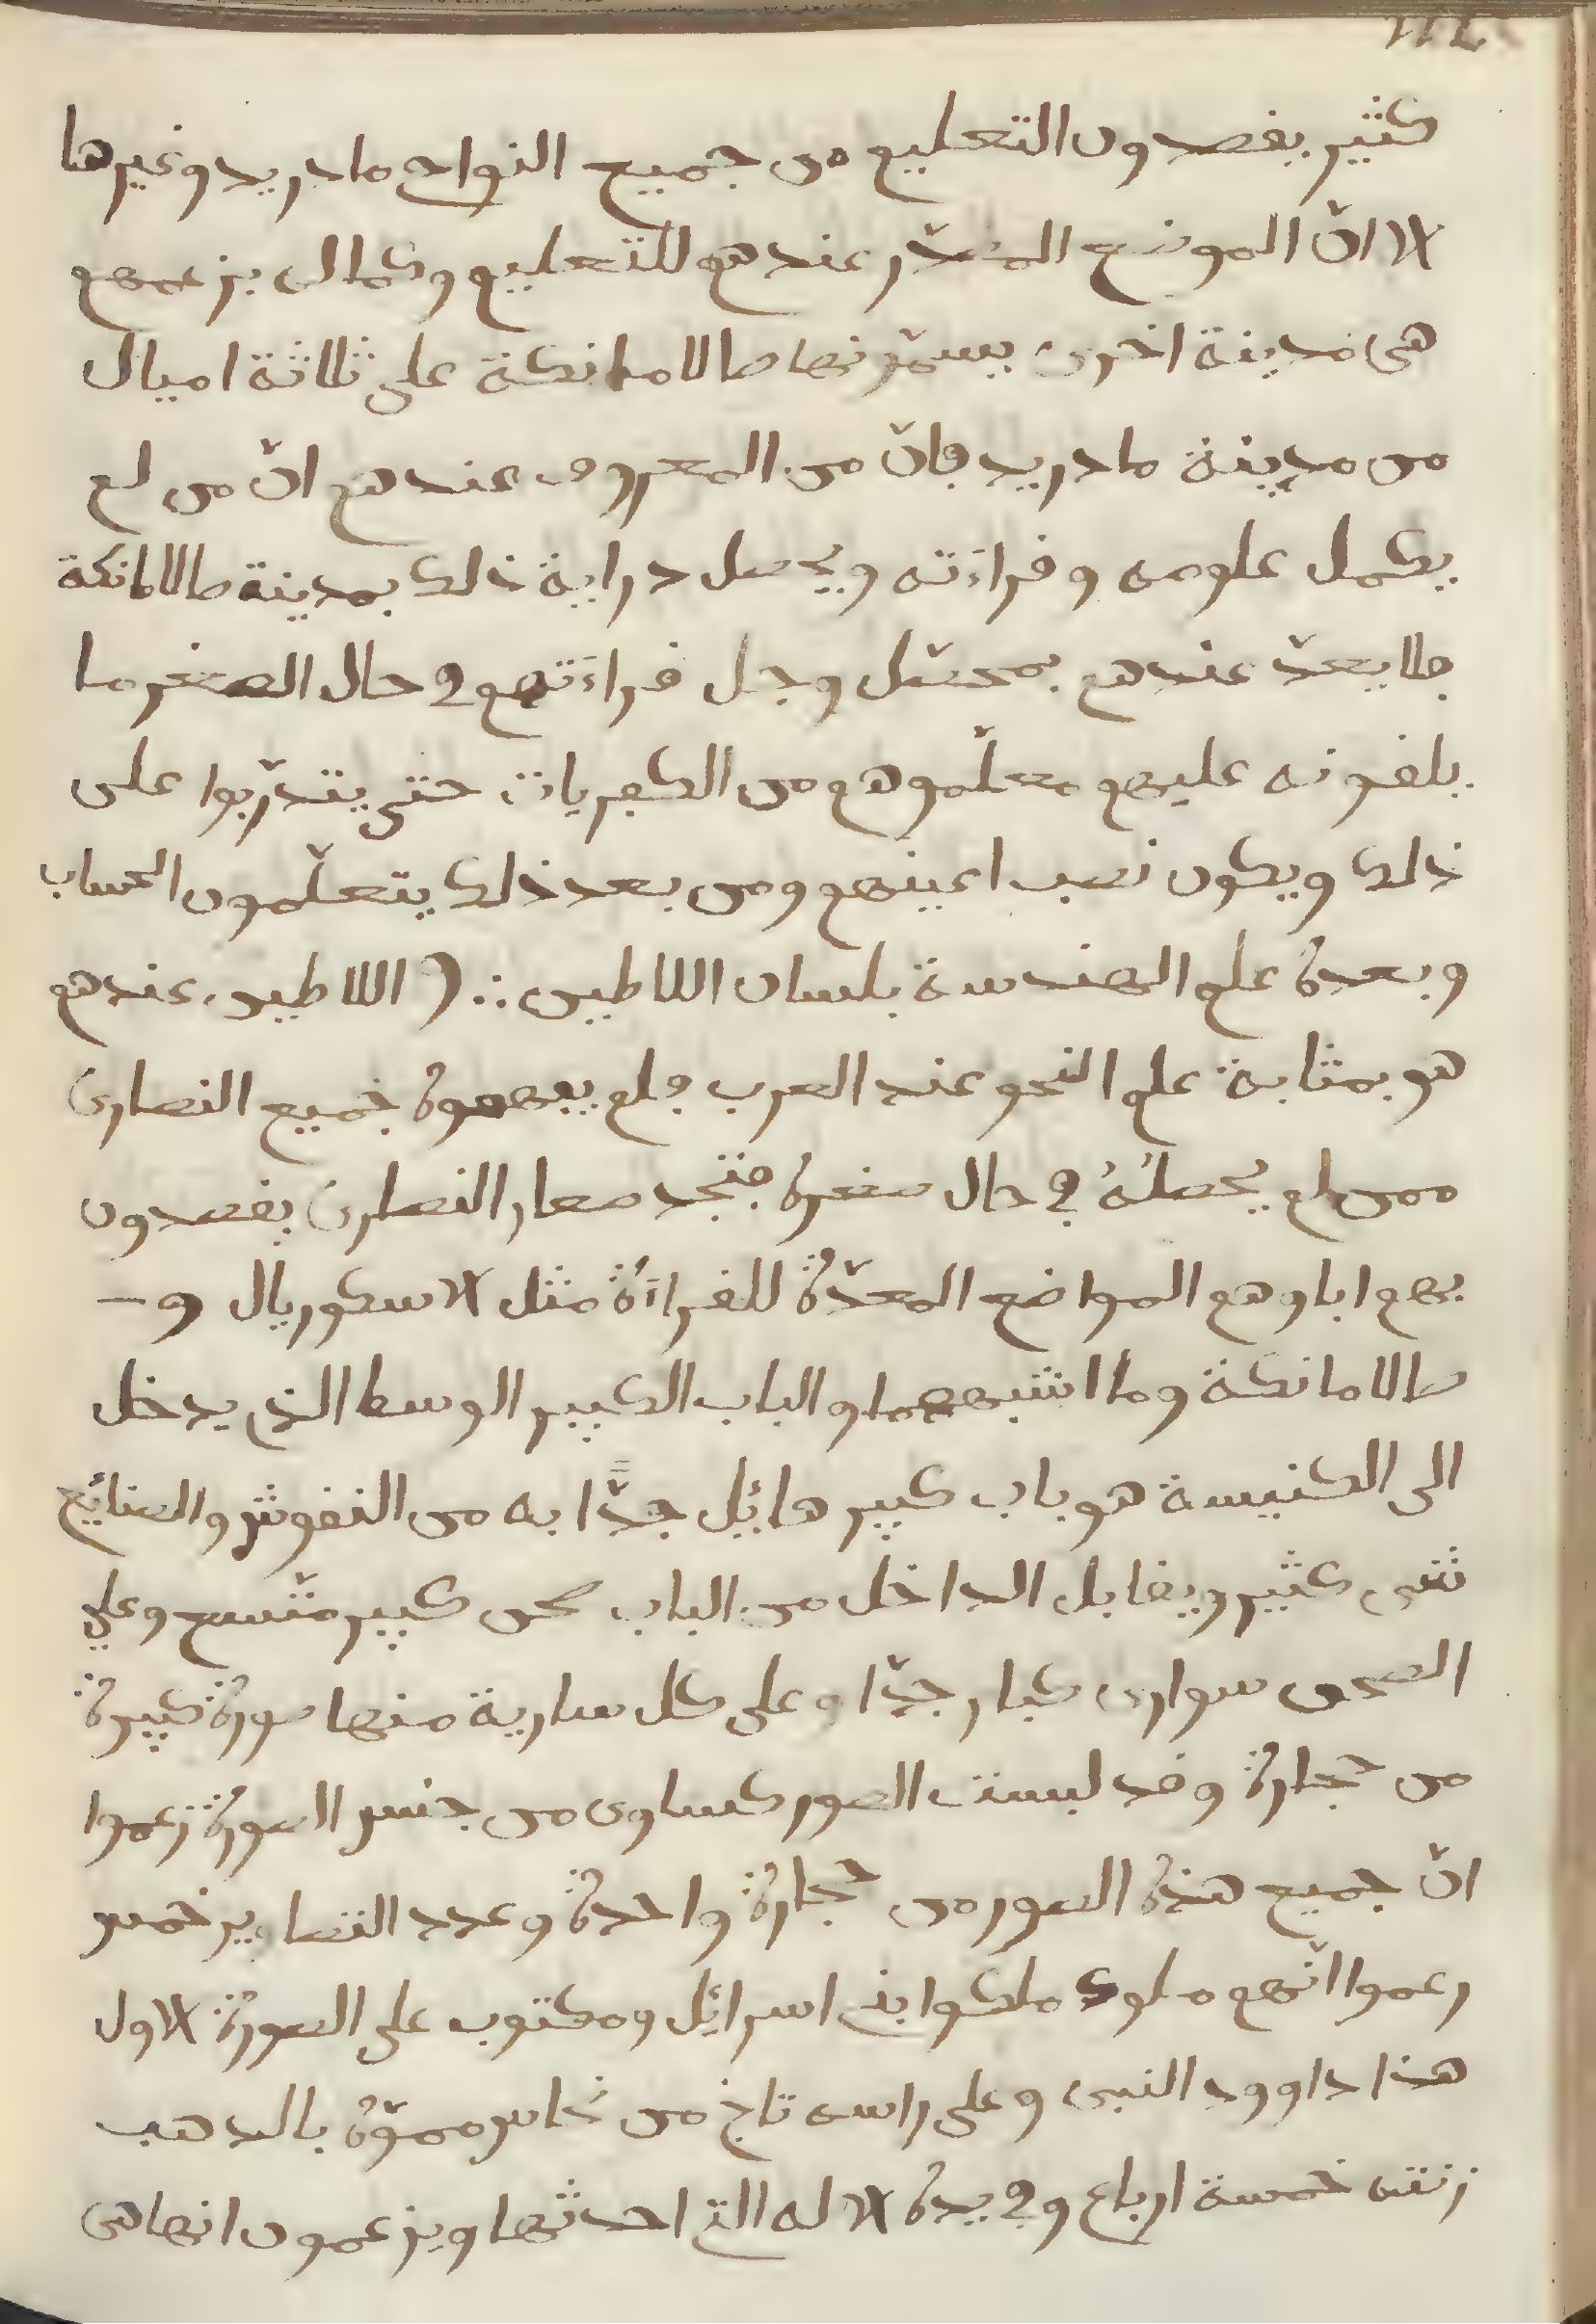 كثير يقصدون التعليم من جميع النواحي مادريد وغيرها
الا انّ الموضع المصدّر عندهم للتعليم وكمالي بزعمهم
هي مدينة اخرى يسمّونها صالامانكة على ثلاثة اميال
من مدينة مادريد فانّ من المعروف عندهم انّ من لم
يكمل علومه وقراءته ويحصل دراية ذلك بمدينة صالامانكة
فلا يعدّ عندهم بمحصّل وجل قراءتهم في حال الصغر ما
يلقونه عليهم معلّموهم من الكفريات حتى يتدرّبوا على
ذلك ويكون نصب اعينهم ومن بعد ذلك يتعلّمون الحساب
وبعده علم الهندسة بلسان اللاطين ∴ (اللاطين عندهم
هو بمثابة علم النحو عند العرب فلم يفهموه جميع النصارى
ممن لم يحصلهُ في حال صغره فتجد صغار النصارى يقصدون
بهم اباوهم المواضع المعدّة للقراءة مثل الاسكوريال و–
صالامانكة وما اشبههما والباب الكبير الوسط الذي يدخل
الى الكنيسة هو باب كبير هائل جدًّا به من النقوش والصنائع
شيى كثير ويقابل الداخل من الباب صحن كبير متّسع وعلى
الصحن سوارى كبار جدّا وعلى كل سارية منها صورة كبيرة
من حجارة وقد لبست الصور كساوى من جنس الصورة زعموا
انّ جميع هذه الصور من حجارة واحدة وعدد التصاوير خمس
زعموا انّهم ملوك ملكوا بني اسرائل ومكتوب على الصورة الاول
هذا داوود النبى وعلى راسه تاج من نحاس مموّه بالدهب
زنته خمسة ارباع وفي يده الاله التي احدثها ويزعمون انها هى